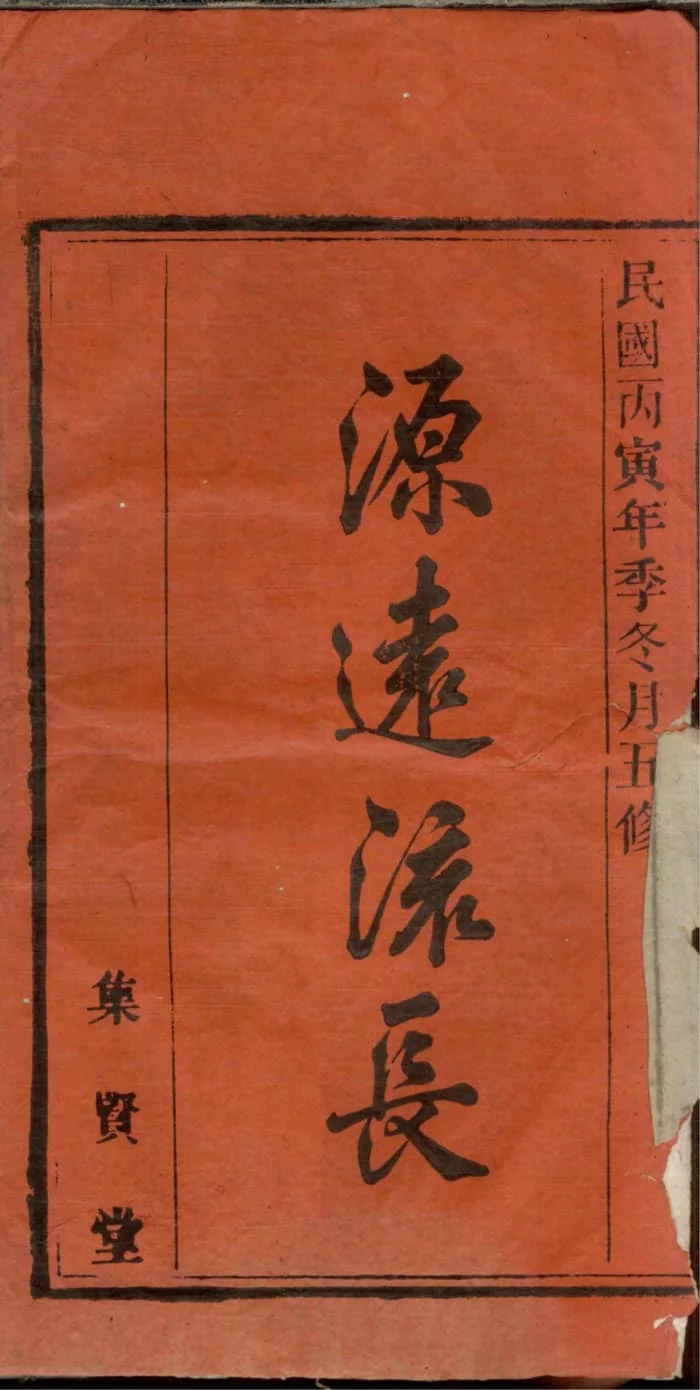 民國丙寅年季冬月五修
源遠流長
集賢堂